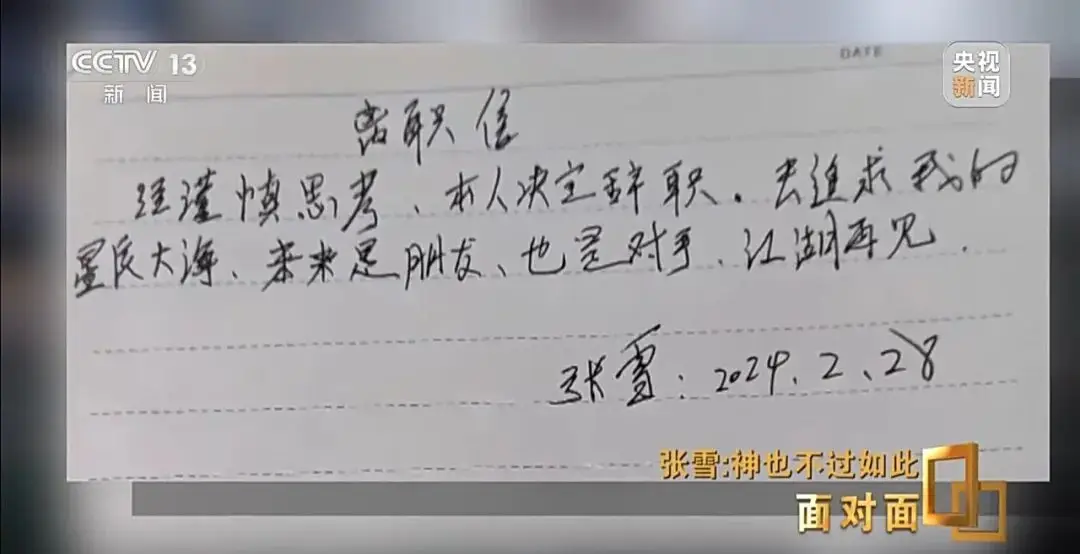 CCTV 13
新闻
DATE
央视
新闻
离职信
经谨慎思考、本人决定辞职。去追求我的
星辰大海、未来是朋友、也是对手、江湖再见.
张雪:2024.2、28
张雪:神也不过如此
面对面